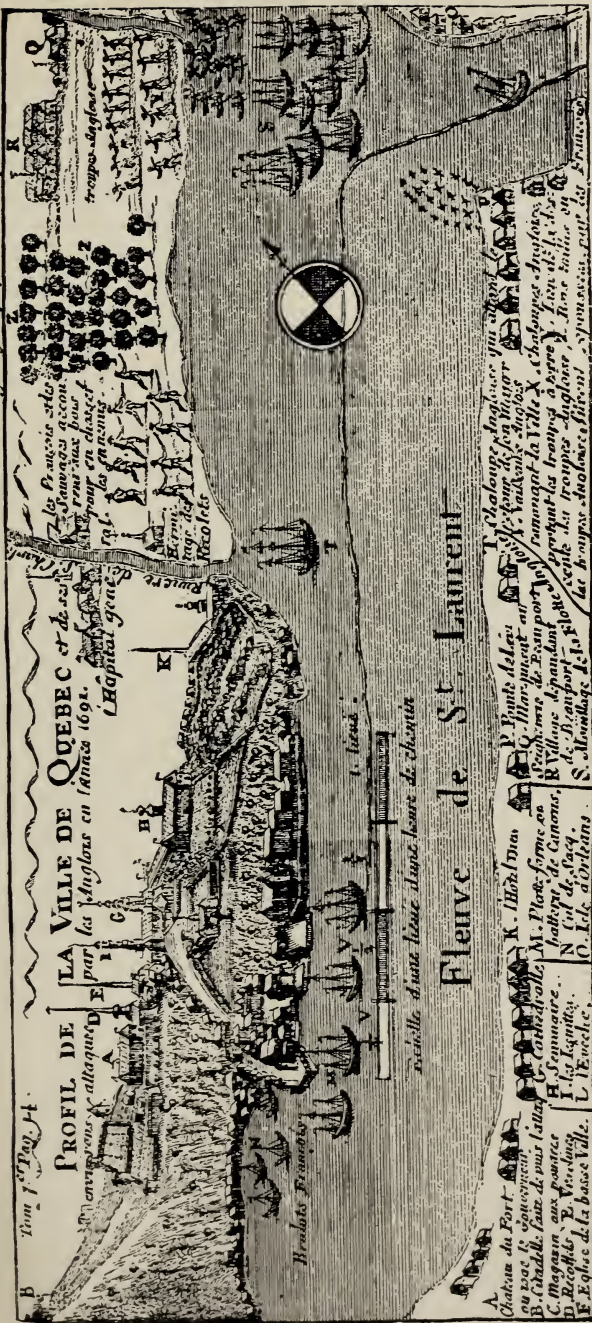 Tom 1.er Pag. 14.
PROFIL DE LA VILLE DE QUEBEC et de ses
environs attaquée par les Anglois en l'année 1691.
B
A
D
E
I
G
H
K
Hôpital géné
ral
Riviere de
St Charles
Z les François et les
Sauvages accou
rus aux bois
pour en chasser
les ennemis
Z
Z
Hermi
tage des
Recolets
R
Q
troupes Angloises
S
T
V
V
Brulots François
1. lieue.
échelle d'une lieue d'une heure de chemin
Fleuve de St Laurent
O
A
Chateau du Fort
ou Bac le Gouverneur
B. Citadelle faite depuis l'attaq
C. Magasin aux poudres
D. Recollets E. Ursulines
F. Eglise de la basse Ville.
G. Cathedralle
H. Seminaire
I. les Jesuittes.
L. l'Eveché.
K. l'Hotel Dieu
M. Platte-forme ou
batterie de Canons,
N. Cul de Sacq.
O. Isle d'Orleans.
P. Pointe de Levi
Seigneurie de Beauport
R. Village dependant
de Beauport
S. Mouillage de la Flotte
T. Chaloupe Angloise qui attend
V. Vaisseaux Anglois
canonant la Ville X. Chaloupes Angloises
portant les troupes à terre
cente des troupes Angloise
les troupes Angloises furent repoussées par les Francois